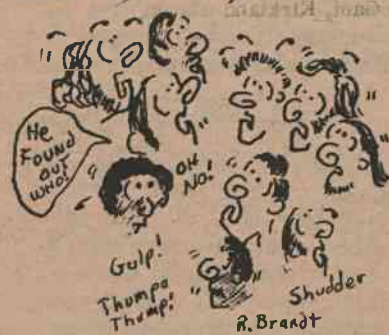 He
Found
out
who!
OH
No!
Gulp!
Thumpa
Thump!
Shudder
R. Brandt